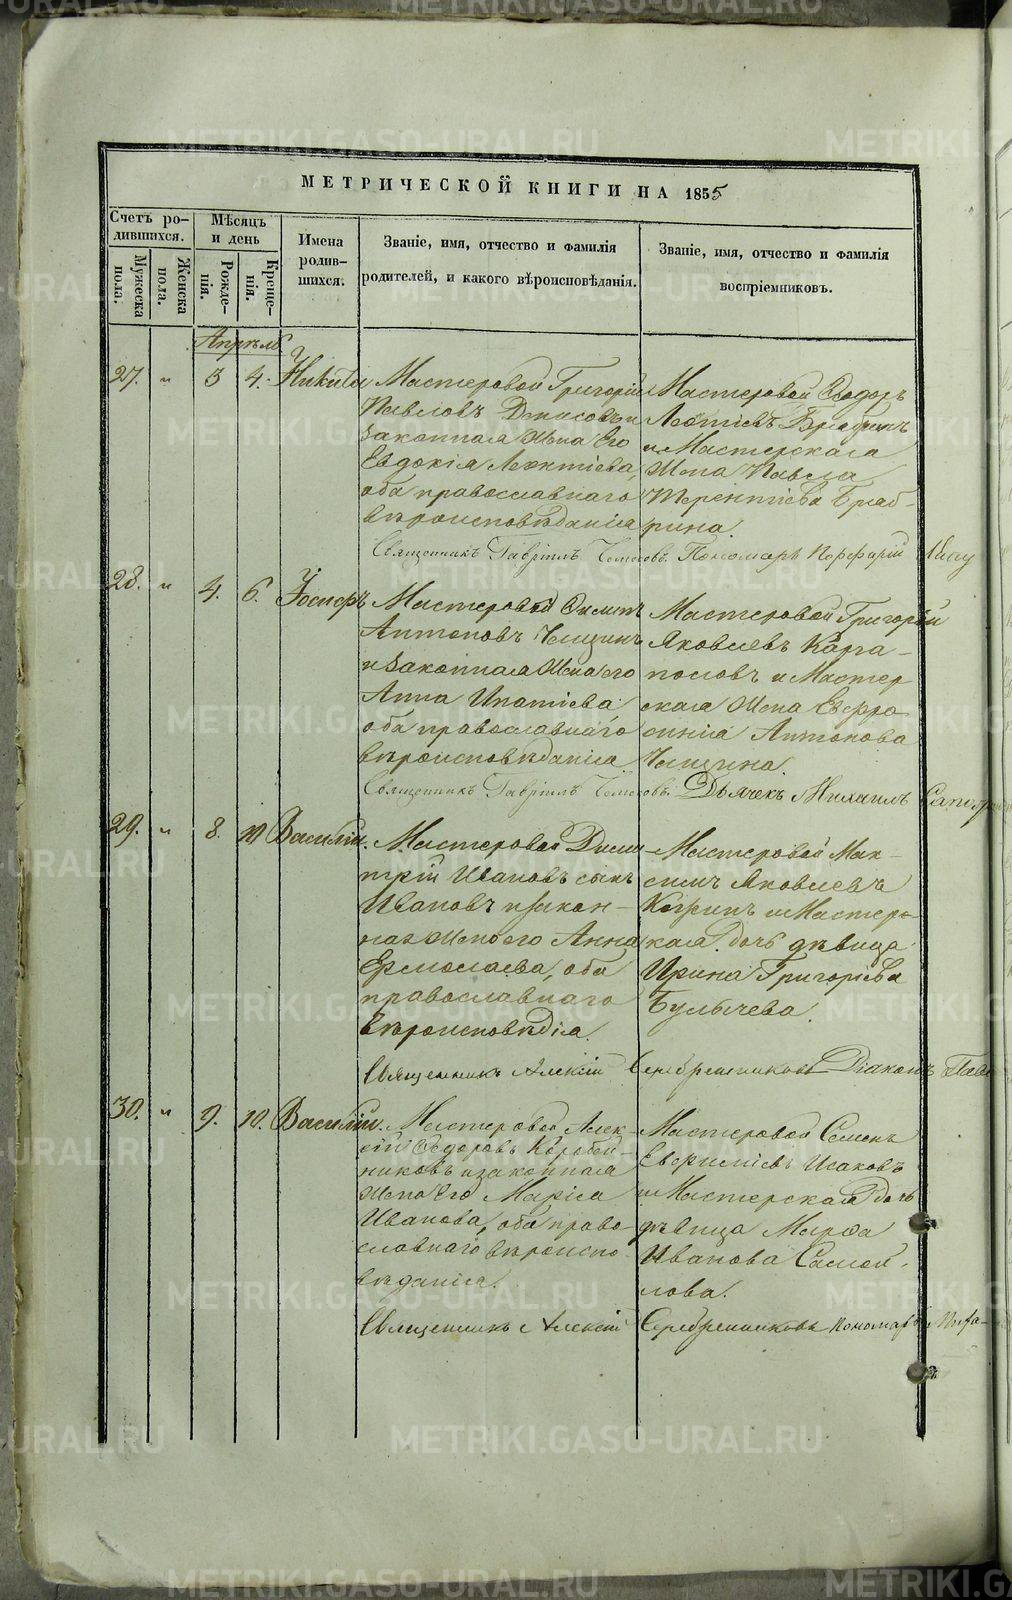 МЕТРИЧЕСКОЙ КНИГИ НА 1855
Счетъ ро-
дившихся.
Мужеска
пола.
Женска
пола.
Мѣсяцъ
и день
Рожде-
нія.
Креще-
нія.
Имена
родив-
шихся.
Званіе, имя, отчество и фамилія
родителей, и какого вѣроисповѣданія.
Званіе, имя, отчество и фамилія
воспріемниковъ.
Апрѣль
27. " 3 4. Никита
Мастеровой Григорій
Павловъ Денисовъ и
законная жена его
Евдокія Леонтіева,
оба православнаго
вѣроисповѣданія
Мастеровой Ѳеодоръ
и Мастерская
жена Павла
Терентіева
Священникъ Гавріилъ Пономарь Порфирій
28. " 4. 6. Іосифъ
Мастеровой
Антоновъ
и законная жена его
Анна Ипатіева
оба православнаго
вѣроисповѣданія
Мастеровой Григорій
Яковлевъ Карга-
половъ и Мастер
ская жена Евфро
синія Антонова
Священникъ Гавріилъ Дьячекъ Михаилъ
29. " 8. 10 Василій.
Мастеровой Дими
трій Ивановъ сынъ
Ивановъ и закон-
ная жена его Анна
Ермолаева, оба
православнаго
вѣроисповѣдія.
Мастеровой Мак-
симъ Яковлевъ
и Мастерс-
кая дочь дѣвица
Ирина Григоріева
Булычева.
Священникъ Алексій Серебренниковъ Діаконъ
30. " 9. 10. Василій.
Мастеровой Алек-
сій Ѳедоровъ Коробей-
никовъ и законная
жена его Марія
Иванова, оба право-
славнаго вѣроиспо-
вѣданія.
Мастеровой Семенъ
Исаковъ
и Мастерская дочь
дѣвица Марфа
Иванова Самой-
лова.
Священникъ Алексій Серебренниковъ Пономарь
METRIKI.GASO-URAL.RU